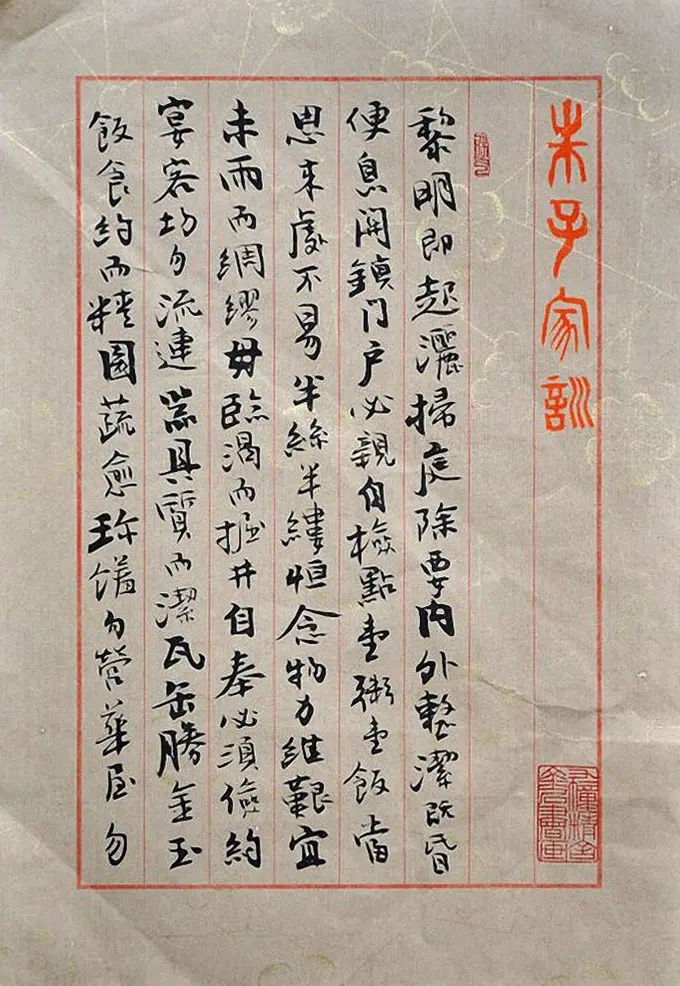 朱子家訓
黎明即起灑掃庭除要内外整潔既昏
便息関鎖门户必親自檢點壹粥壹飯當
思来處不易半絲半縷恒念物力維艱宜
未雨而綢繆毋臨渴而掘井自奉必須儉約
宴客切勿流連器具質而潔瓦缶勝金玉
飯食約而精園蔬愈珍饈勿營華屋勿